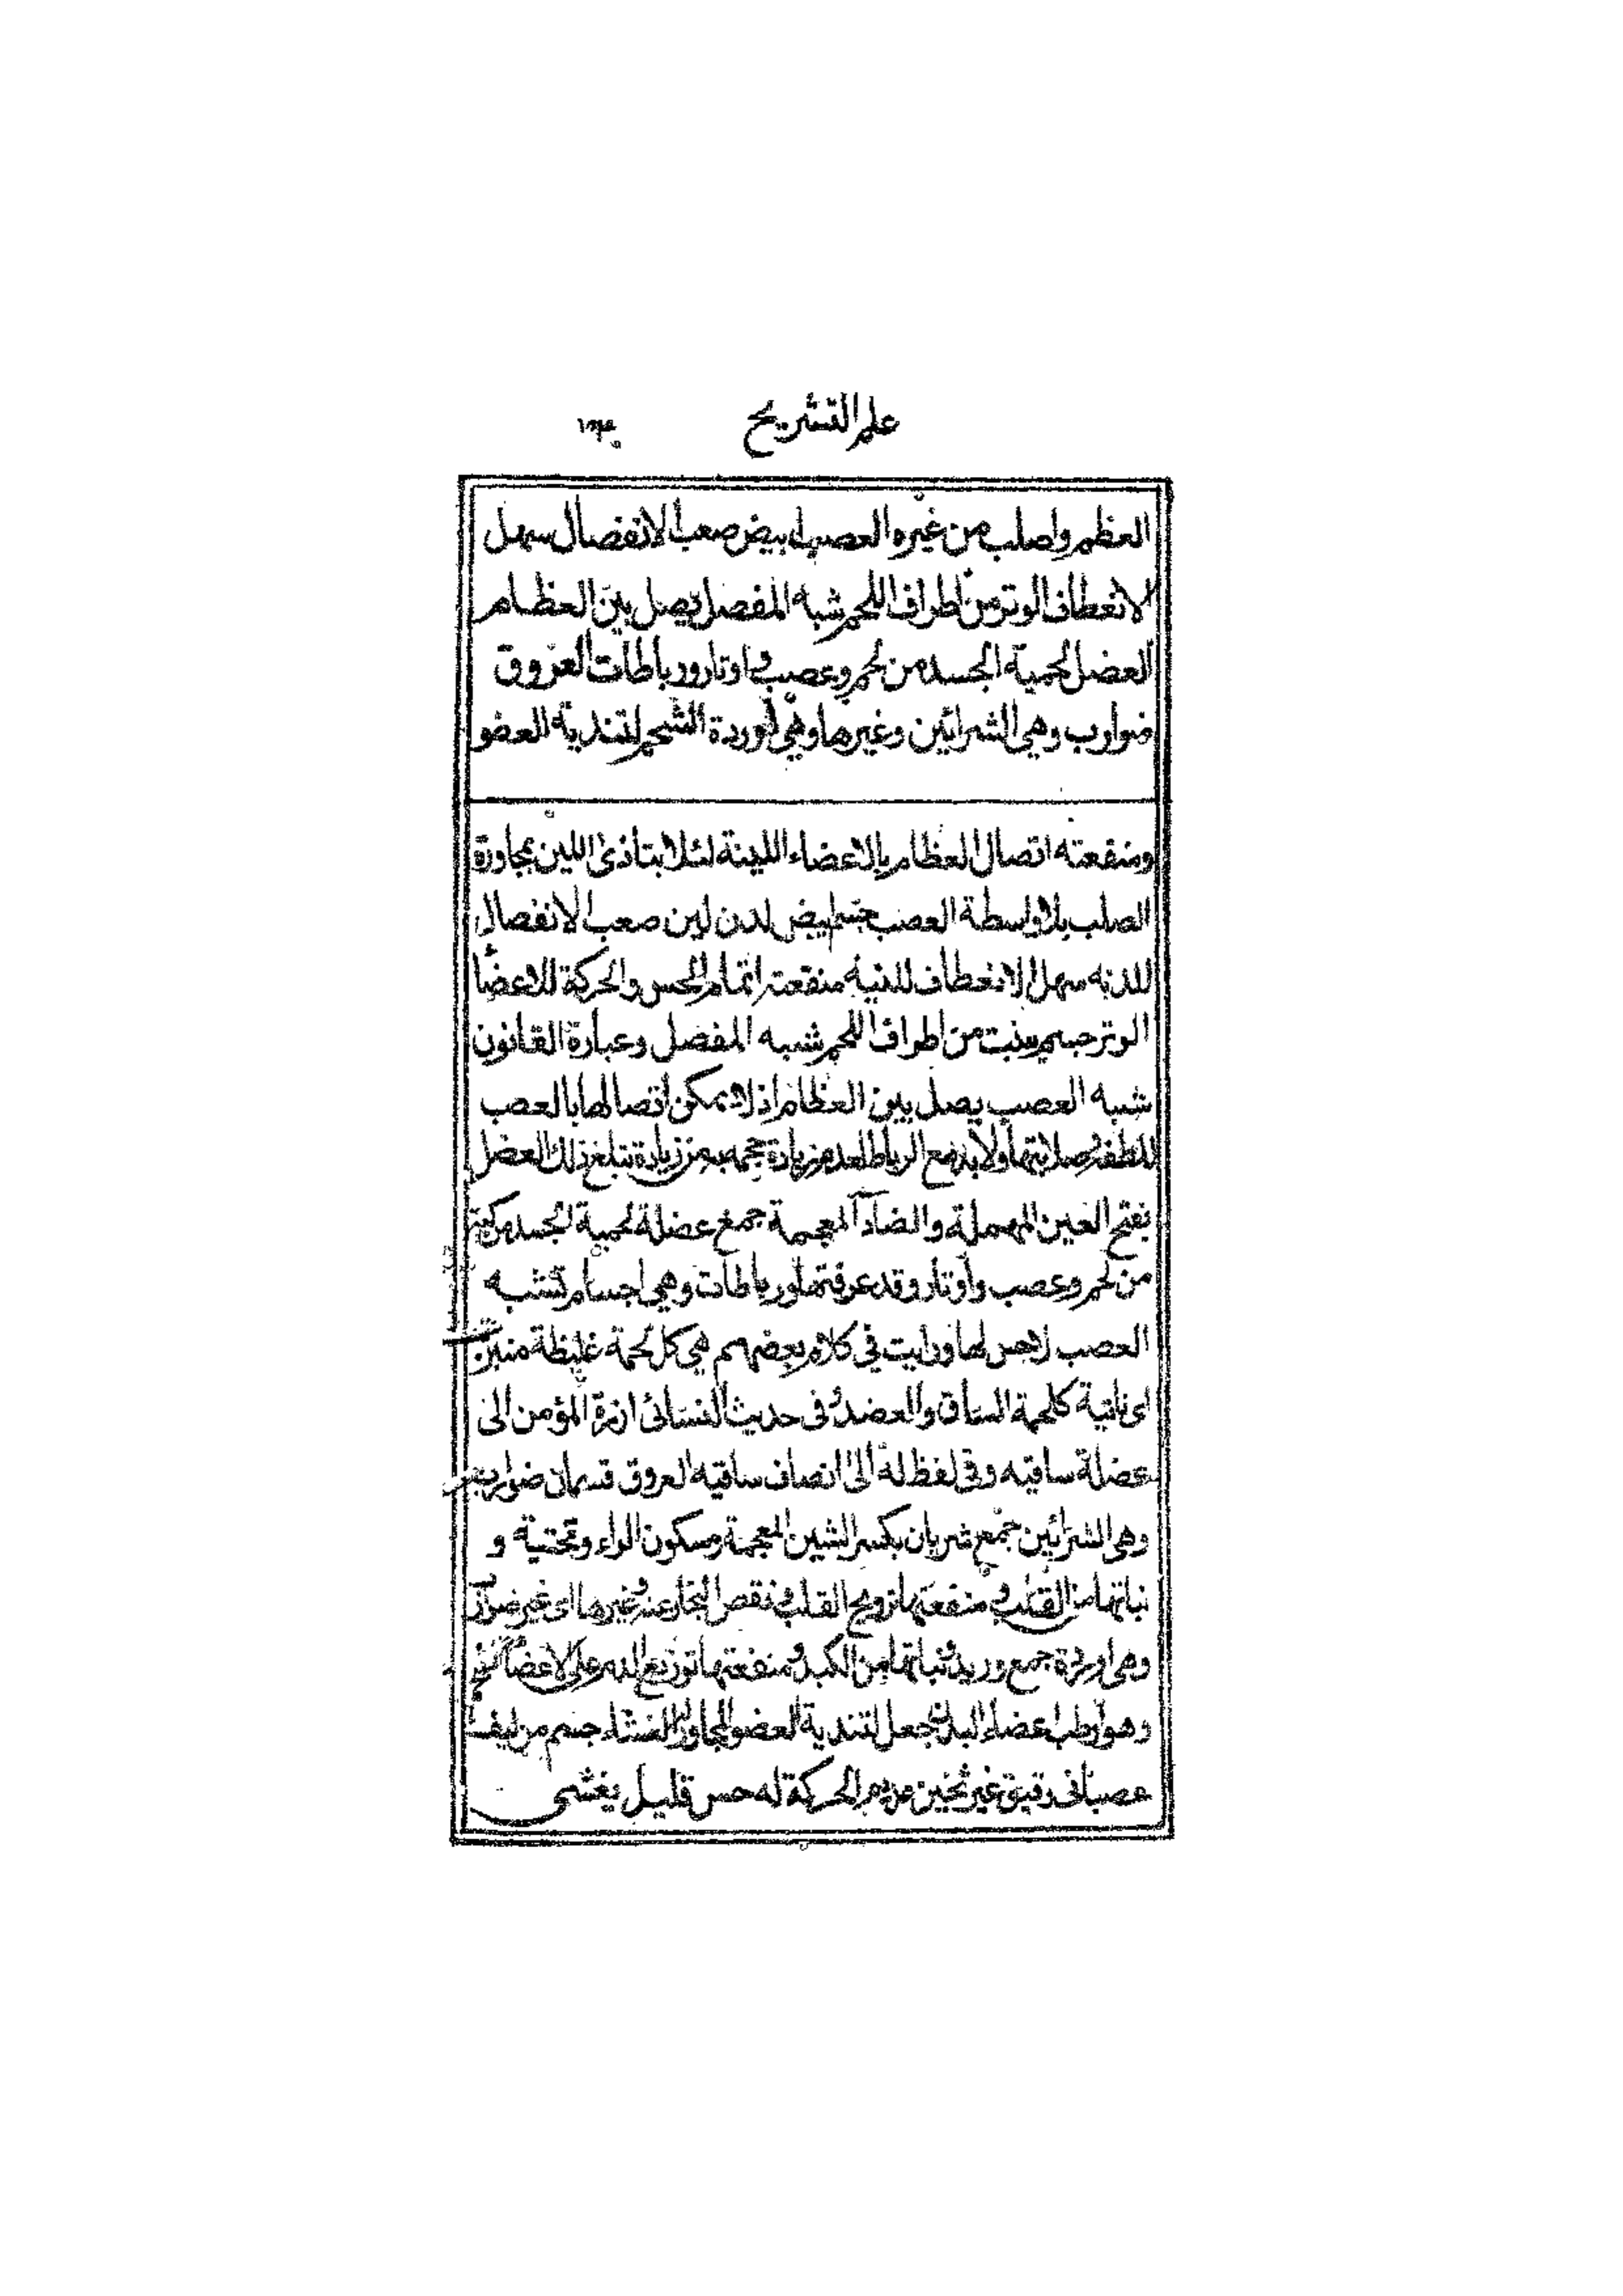 علم التشريح
العظم واصلب من غيره العصب ابيض صعب الانفصال سهل
الانعطاف الوتر من اطراف اللحم شبه المفصل يصل بين العظام
العضل لحمية الجسد من لحم وعصب و اوتار ورباطات العروق
ضوارب وهي الشرائين وغيرها وهي اوردة الشحم لتندية العضو
ومنفعته اتصال العظام بالاعضاء اللينة لئلا يتاذى اللين بمجاورة
الصلب بلا واسطة العصب جسم ابيض لدن لين صعب الانفصال
للدنه سهل الانعطاف للينه منفعته اتمام الحس والحركة للاعضا
الوتر جسم ينبت من اطراف اللحم شبه المفصل وعبارة القانون
شبه العصب يصل بين العظام اذ لا يمكن اتصالها بالعصب
للطفه وصلابتها ولا بد مع الرباط لعدم زيادة حجمه به من زيادة تبلغ ذلك العضل
بفتح العين المهملة والضاد المعجمة جمع عضلة لحمية الجسد مركبة
من لحم وعصب واوتار وقد عرفتها ورباطات وهي اجسام تشبه
العصب لا حس لها ورايت في كلام بعضهم هي كل لحمة غليظة منتبرة
اى ناتية كلحمة الساق والعضد وفى حديث النسائى ازرة المؤمن الى
عضلة ساقيه وفى لفظ له الى انصاف ساقيه العروق قسمان ضوارب
وهى الشرائين جمع شريان بكسر الشين المعجمة وسكون الراء وتحتية و
نباتها من القلب و منفعتها ترويح القلب و نفض البخار عنه وغيرها اى غير ضوارب
وهى اوردة جمع وريد ونباتها من الكبد ومنفعتها توزيع الدم على الاعضا الشحم
وهو ارطب اعضاء البدن جعل لتندية العضو المجاور الغشاء جسم من ليف
عصبانى رقيق غير ثخين عديم الحركة له حس قليل يغشى